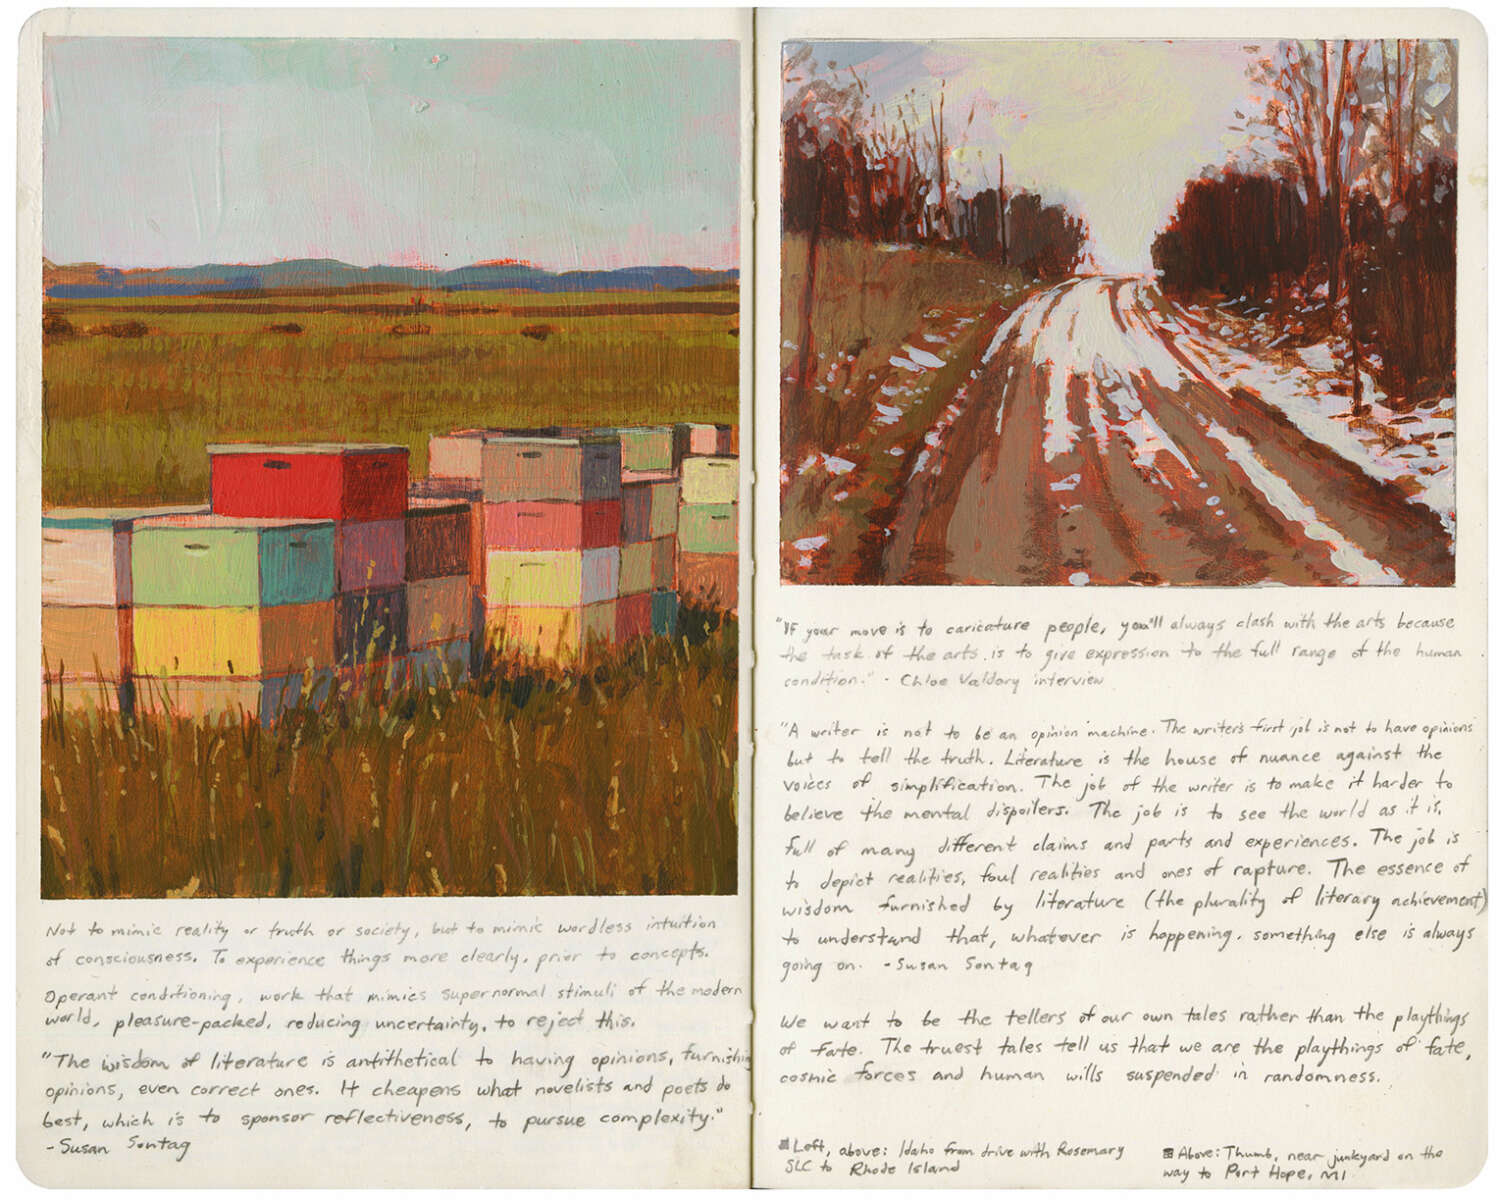 Not to mimic reality or truth or society, but to mimic wordless intuition
of consciousness. To experience things more clearly, prior to concepts.
Operant conditioning, work that mimics supernormal stimuli of the modern
world, pleasure-packed, reducing uncertainty, to reject this.
"The wisdom of literature is antithetical to having opinions, furnishing
opinions, even correct ones. It cheapens what novelists and poets do
best, which is to sponsor reflectiveness, to pursue complexity."
- Susan Sontag
"If your move is to caricature people, you'll always clash with the arts because
the task of the arts is to give expression to the full range of the human
condition." - Chloe Valdary interview
"A writer is not to be an opinion machine. The writer's first job is not to have opinions
but to tell the truth. Literature is the house of nuance against the
voices of simplification. The job of the writer is to make it harder to
believe the mental dispoilers. The job is to see the world as it is,
full of many different claims and parts and experiences. The job is
to depict realities, foul realities and ones of rapture. The essence of
wisdom furnished by literature (the plurality of literary achievement)
to understand that, whatever is happening, something else is always
going on. - Susan Sontag
We want to be the tellers of our own tales rather than the playthings
of fate. The truest tales tell us that we are the playthings of fate,
cosmic forces and human wills suspended in randomness.
Left, above: Idaho from drive with Rosemary
SLC to Rhode Island
Above: Thumb, near junkyard on the
way to Port Hope, MI